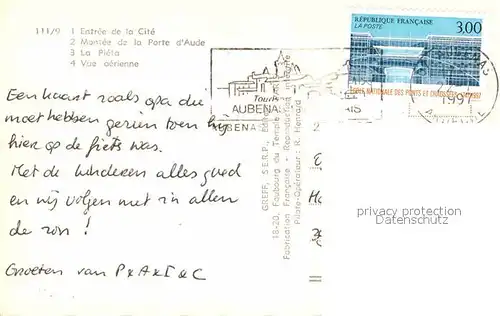 111/9 1 Entrée de la Cité
2 Montée de la Porte d'Aude
3 La Piéta
4 Vue aérienne
RÉPUBLIQUE FRANÇAISE
LA POSTE 3,00
NATIONALE DES PONTS ET CHAUSSÉES
1997
AUBENA
Een kaart zoals opa die
moet hebben gezien toen hij
hier op de fiets was.
Met de kinderen alles goed
en wij volgen met in allen
de zon !
Groeten van P x A x I & C
GREFF, S.E.R.P.
18-20, Faubourg du Temple
Fabrication Française - Reproduction interdite
Pilote-Opérateur : R. Henrard
privacy protection
www.ansichtskarten-center.de